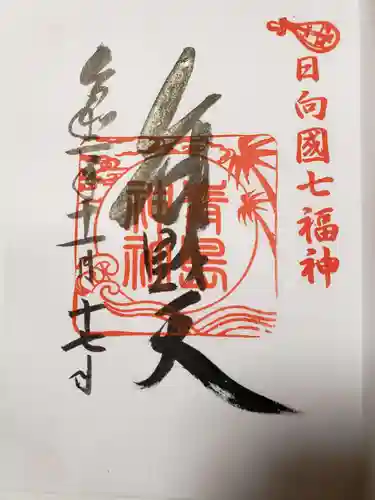 日向國七福神
弁財天
青島
神社
令和二年十一月十七日